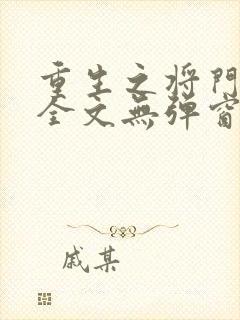 重生之将門
全文無弹窗
戚某